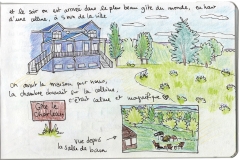 et le soir on est arrivé dans le plus beau gîte du monde, en haut
d'une colline, à 5 min de la ville
On avait la maison pour nous,
la chambre donnait sur la colline,
c'était calme et magnifique
Gîte le
vue depuis
la salle de bain